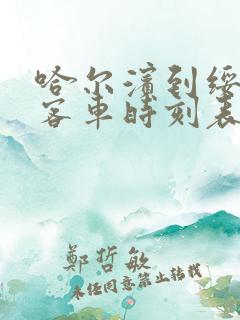 哈尔滨到绥
客车时刻表
鄭哲敏
未经同意禁止转载